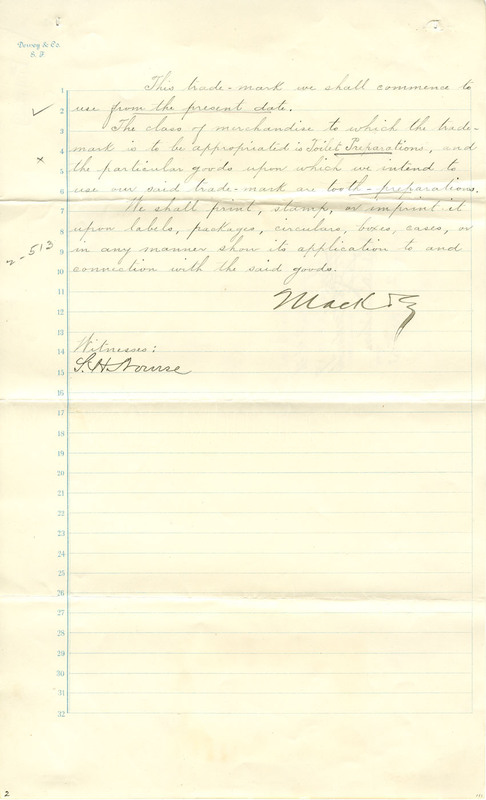 Dewey & Co.
S. F.
1 This trade-mark we shall commence to
2 use from the present date.
3 The class of merchandise to which the trade-
4 mark is to be appropriated is Toilet Preparations, and
5 the particular goods upon which we intend to
6 use our said trade-mark are tooth-preparations.
7 We shall print, stamp, or imprint it
8 upon labels, packages, circulars, boxes, cases, or
9 in any manner show its application to and
10 connection with the said goods.
2-513
11
Mack &
12
13
Witnesses:
14
S. H. Nourse
15
16
17
18
19
20
21
22
23
24
25
26
27
28
29
30
31
32
2